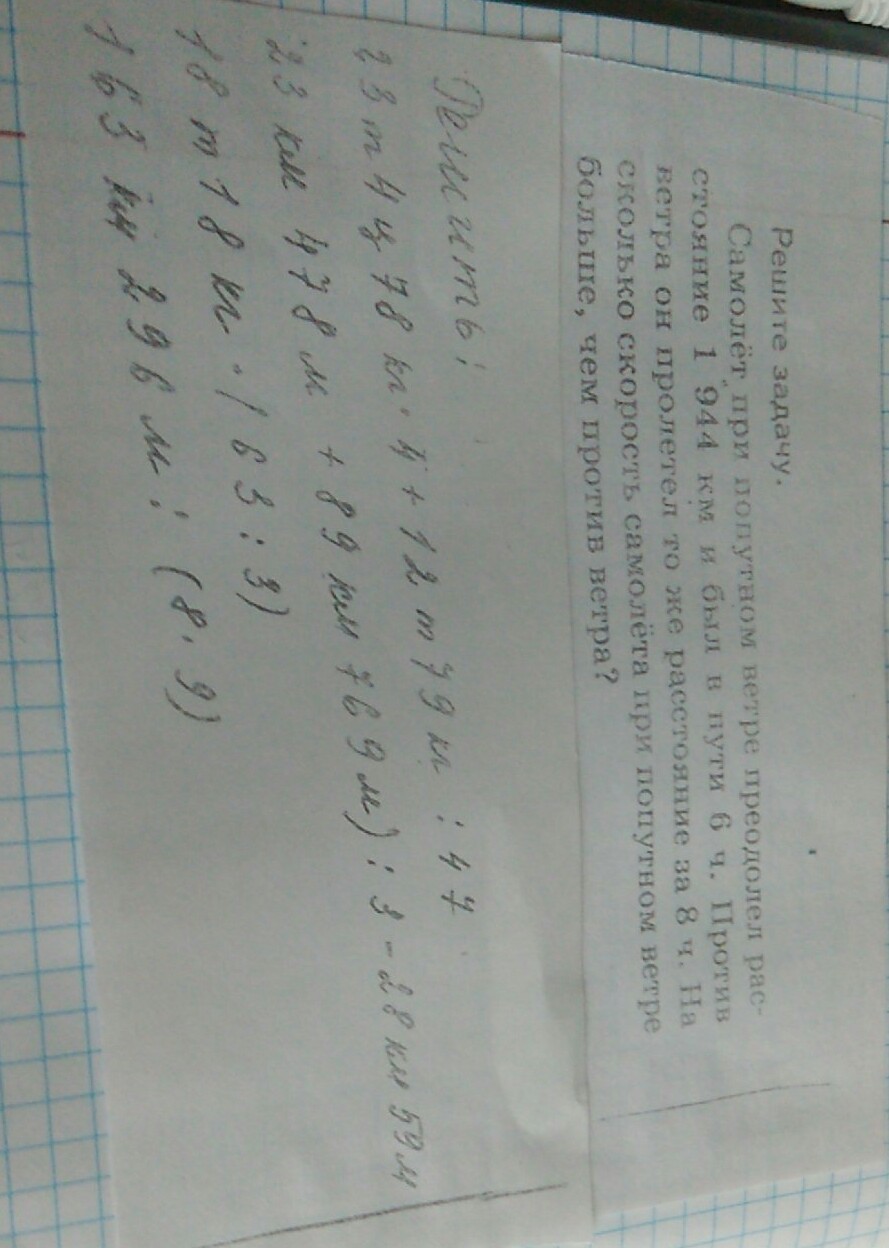 Решите задачу.
Самолёт при попутном ветре преодолел рас-
стояние 1 944 км и был в пути 6 ч. Против
ветра он пролетел то же расстояние за 8 ч. На
сколько скорость самолёта при попутном ветре
больше, чем против ветра?
Решить:
23 т 4 ц 78 кг · 4 + 12 т 79 кг : 47
23 км 478 м + 89 км 769 м) : 3 - 28 км 59 м
18 т 18 кг · (63 : 3)
163 км 296 м : (8 · 9)